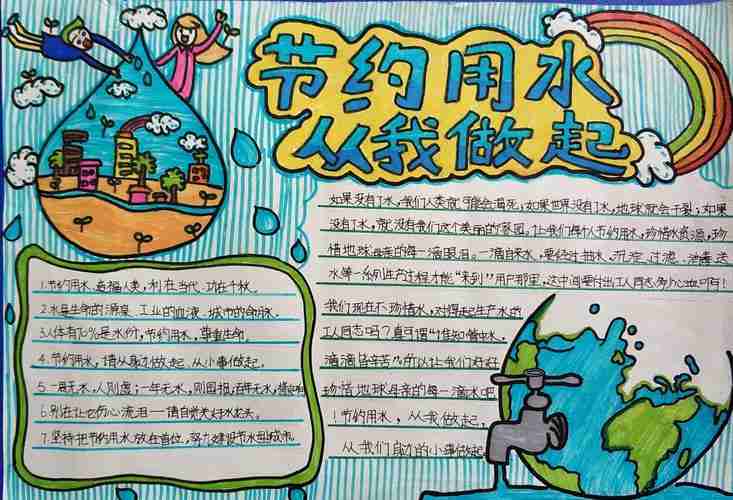 节约用水
从我做起
1.节约用水,造福人类,利在当代,功在千秋。
2.水是生命的源泉、工业的血液、城市的命脉。
3.人体有70%是水份,节约用水,尊重生命。
4.节约用水,请从身边做起,从小事做起。
5.一周无水,人则虑;一年无水,则国损;百年无水,
6.别在让它伤心流泪——请自觉关好水龙头。
7.坚持把节约用水放在首位,努力建设节水型城市。
如果没有了水,我们人类就可能会渴死;如果世界没有了水,地球就会干裂;如果
没有了水,就没有我们这个美丽的家园。让我们每个人节约用水,珍惜水资源,珍
惜地球母亲的每一滴眼泪。一滴自来水,要经过抽水、沉淀、过滤、消毒、送
水等一系列生产过程才能“来到”用户那里,这中间要付出工人同志多少心血啊!
我们现在不珍惜水,对得起生产水的
工人同志吗?真可谓“惟知管中水,
滴滴皆辛苦”所以让我们好好
珍惜地球母亲的每一滴水吧
!节约用水,从我做起,
从我们身边的小事做起